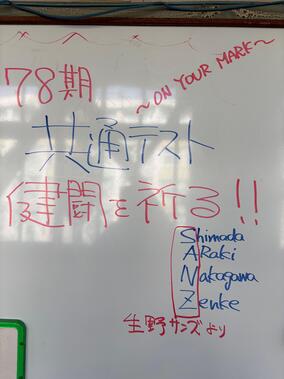 78期
~ON YOUR MARK~
共通テスト
健闘を祈る!!
Shimada
ARaki
Nakagawa
Zenke
生野サンズより